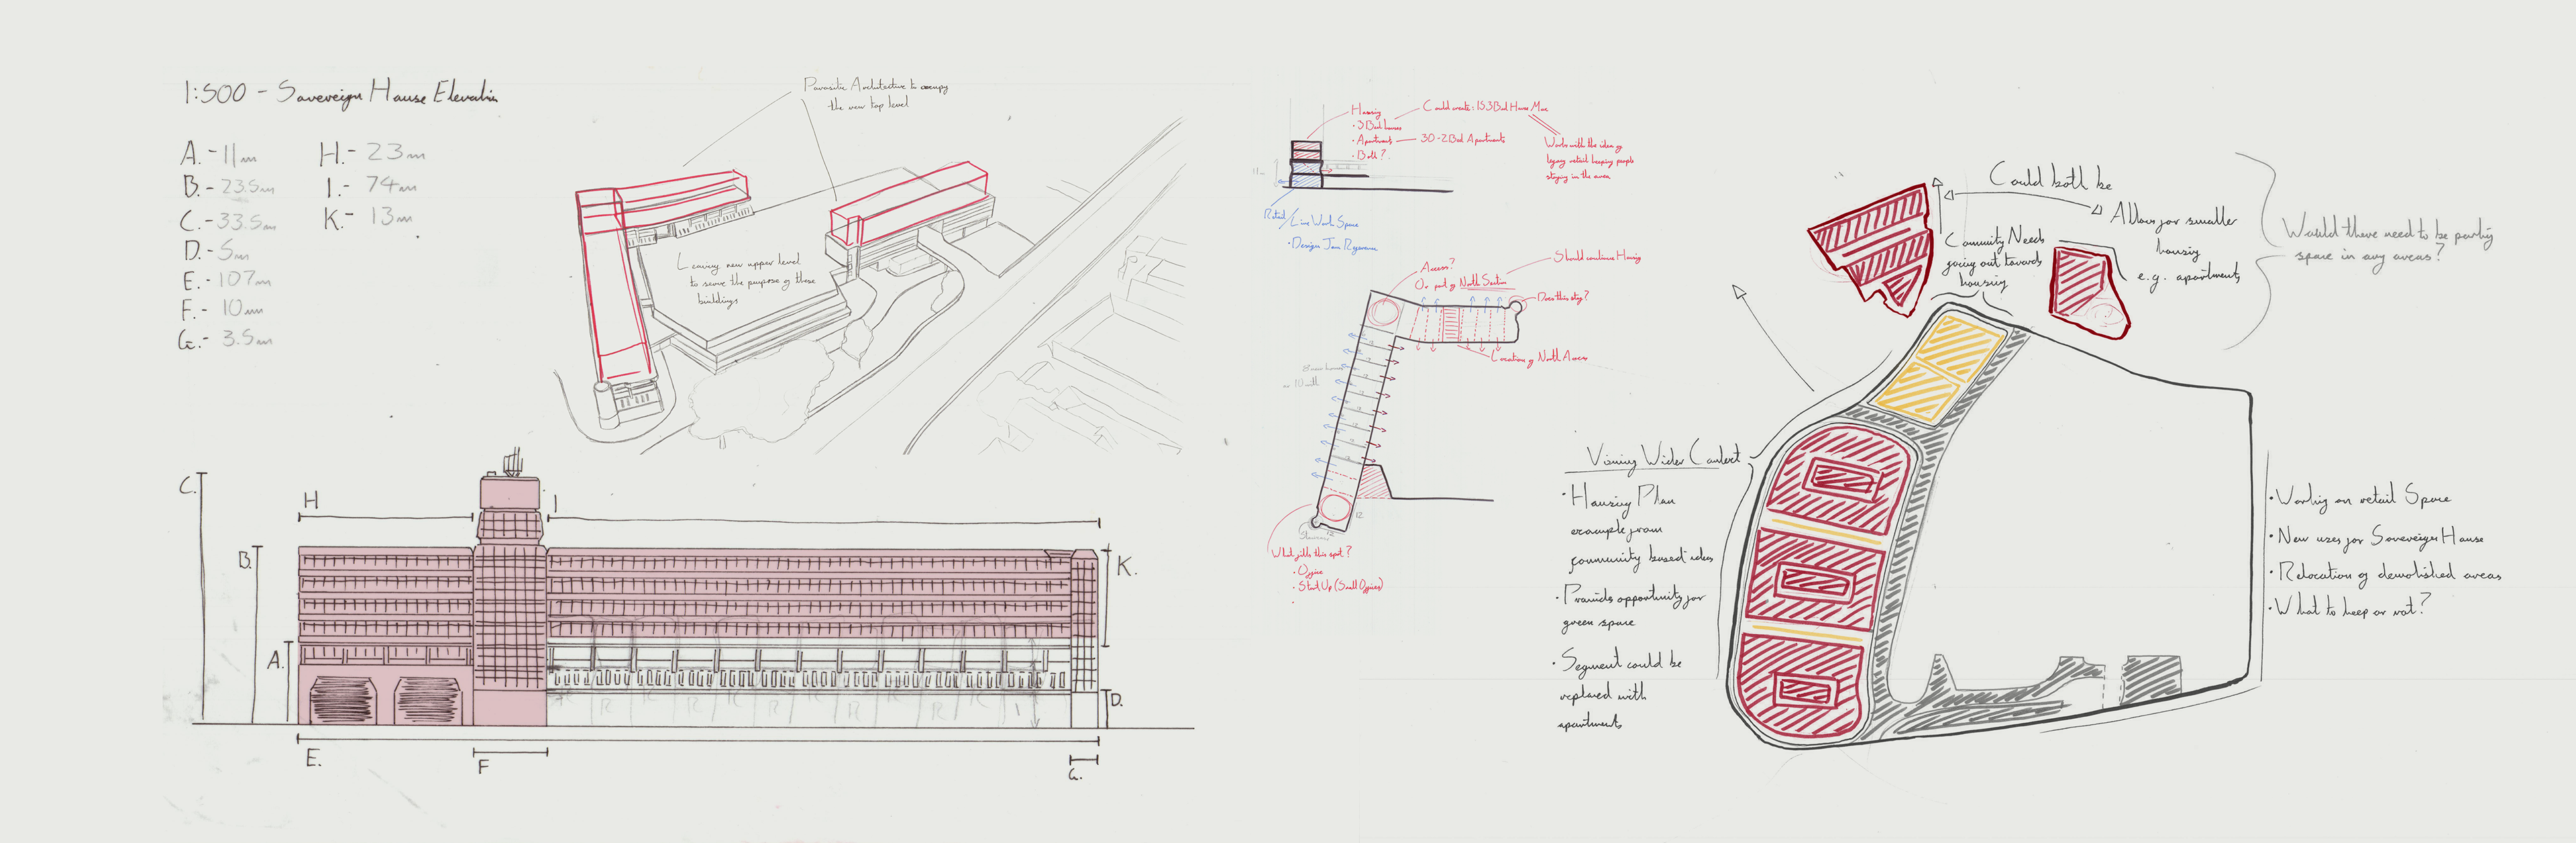 1:500 - Sovereign House Elevation
A.- 11m
B.- 23.5m
C.- 33.5m
D.- 5m
E.- 107m
F.- 10m
G.- 3.5m
H.- 23m
I.- 74m
K.- 13m
Parasitic Architecture to occupy
the new top level
Leaving new upper level
to serve the purpose of these
buildings
C.
H
I
B.
K.
A.
D.
E.
F
G.
R R R R R R
Housing
• 3 Bed houses
• Apartments
• Both?
Could create: 15 3 Bed House Max
30 - 2 Bed Apartments
Works with the idea of
legacy retail keeping people
staying in the area
11m
Retail/Live Work Space
Access?
Or part of North Section
Should continue Housing
Does this stay?
Location of North Access
or 10 with
12
What fills this spot?
• Office
• Start Up (Small Offices)
•
Could both be
Allows for smaller
housing
e.g. apartments
Community Needs
facing out towards
housing
Would there need to be parking
space in any areas?
Viewing Wider Context
• Housing Plan
example from
community based ideas
• Provides opportunity for
green space
• Segment could be
replaced with
apartments
• Working on retail Space
• New uses for Sovereign House
• Relocation of demolished areas
• What to keep or not?